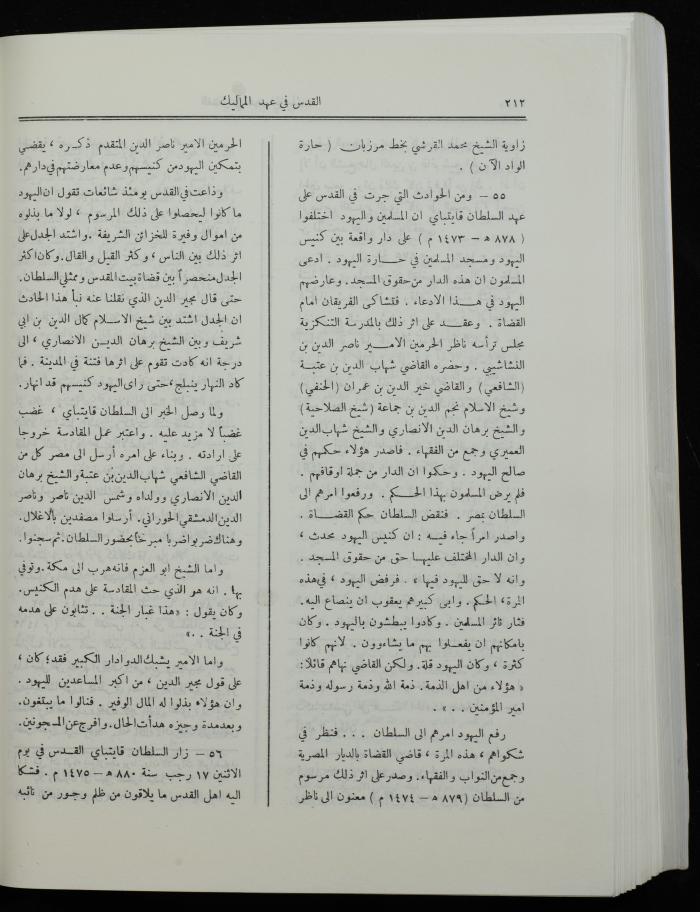 ٢١٢
القدس في عهد المماليك
زاوية الشيخ محمد القرشي بخط مرزبان ( حارة
الواد الآن ) .
٥٥ – ومن الحوادث التي جرت في القدس على
عهد السلطان قايتباي ان المسلمين واليهود اختلفوا
( ٨٧٨ ه – ١٤٧٣ م ) على دار واقعة بين كنيس
اليهود ومسجد المسلمين في حارة اليهود . ادعى
المسلمون ان هذه الدار من حقوق المسجد. وعارضهم
اليهود في هذا الادعاء . فتشاكى الفريقان امام
القضاة . وعقد على اثر ذلك بالمدرسة التنكزية
مجلس ترأسه ناظر الحرمين الامير ناصر الدين بن
النشاشيبي . وحضره القاضي شهاب الدين بن عتبة
(الشافعي) والقاضي خير الدين بن عمران (الحنفي)
وشيخ الاسلام نجم الدين بن جماعة (شيخ الصلاحية)
والشيخ برهان الدين الانصاري والشيخ شهاب الدين
العميري وجمع من الفقهاء . فاصدر هؤلاء حكمهم في
صالح اليهود . وحكموا ان الدار من جملة اوقافهم .
فلم يرض المسلمون بهذا الحكم . ورفعوا امرهم الى
السلطان بمصر . فنقض السلطان حكم القضاة .
واصدر امراً جاء فيه : ان كنيس اليهود محدث ،
وان الدار المختلف عليها حق من حقوق المسجد .
وانه لا حق لليهود فيها » . فرفض اليهود ، في هذه
المرة، الحكم . وابى كبيرهم يعقوب ان ينصاع اليه.
فثار ثائر المسلمين . وكادوا يبطشون باليهود . وكان
بامكانهم ان يفعلوا بهم ما يشاءوون . لانهم كانوا
كثرة ، وكان اليهود قلة. ولكن القاضي نهاهم قائلاً:
« هؤلاء من اهل الذمة. ذمة الله وذمة رسوله وذمة
امير المؤمنين . . » .
رفع اليهود امرهم الى السلطان . . . فنظر في
شكواهم ، هذه المرة ، قاضي القضاة بالديار المصرية
وجمع من النواب والفقهاء. وصدر على اثر ذلك مرسوم
من السلطان (٨٧٩ ه – ١٤٧٤ م ) معنون الى ناظر
الحرمين الامير ناصر الدين المتقدم ذكره ، يقضي
بتمكين اليهود من كنيسهم وعدم معارضتهم في دارهم.
وذاعت في القدس يومئذ شائعات تقول ان اليهود
ما كانوا ليحصلوا على ذلك المرسوم ، لولا ما بذلوه
من اموال وفيرة للخزائن الشريفة . واشتد الجدل على
اثر ذلك بين الناس ، وكثر القيل والقال. وكان اكثر
الجدل منحصراً بين قضاة بيت المقدس وممثلي السلطان.
حتى قال مجير الدين الذي نقلنا عنه نبأ هذا الحادث
ان الجدل اشتد بين شيخ الاسلام كمال الدين بن ابي
شريف وبين الشيخ برهان الدين الانصاري ، الى
درجة انه كادت تقوم على اثرها فتنة في المدينة . فما
كاد النهار ينبلج، حتى رأى اليهود كنيسهم قد انهار.
ولما وصل الخبر الى السلطان قايتباي ، غضب
غضباً لا مزيد عليه . واعتبر عمل المقادسة خروجا
على ارادته . وبناء على امره أرسل الى مصر كل من
القاضي الشافعي شهاب الدين بن عتبة والشيخ برهان
الدين الانصاري وولداه وشمس الدين ناصر وناصر
الدين الدمشقي الحوراني. أرسلوا مصفدين بالاغلال.
وهناك ضربوا ضربا مبرحا بحضور السلطان. ثم سجنوا.
واما الشيخ ابو العزم فانه هرب الى مكة. وتوفي
بها . انه هو الذي حث المقادسة على هدم الكنيس.
وكان يقول : «هذا غبار الجنة . . تثابون على هدمه
في الجنة . .»
واما الامير يشبك الدوادار الكبير فقد؛ كان ،
على قول مجير الدين ، من اكبر المساعدين لليهود .
وان هؤلاء بذلوا له المال الوفير . فنالوا ما يبتغون.
وبعد مدة وجيزه هدأت الحال. وافرج عن المسجونين.
٥٦ – زار السلطان قايتباي القدس في يوم
الاثنين ١٧ رجب سنة ٨٨٠ ه – ١٤٧٥ م . فشكا
اليه اهل القدس ما يلاقون من ظلم وجور من نائبه